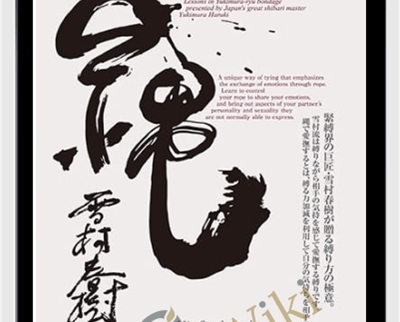 Lessons in Yukimura-ryu bondage
presented by Japan's great shibari master
Yukimura Haruki
A unique way of tying that emphasizes
the exchange of emotions through rope.
Learn to control
your rope to share your emotions,
and bring out aspects of your partner's
personality and sexuality they
are not normally able to express.
緊縛界の巨匠・雪村春樹が贈る縛り方の極意。
雪村流は縛りながら相手の気持を感じて愛撫する縛りです。
縄で愛撫するとは、縛る力加減を利用して自分の気持ちを相
縄
雪村春樹
Wiki